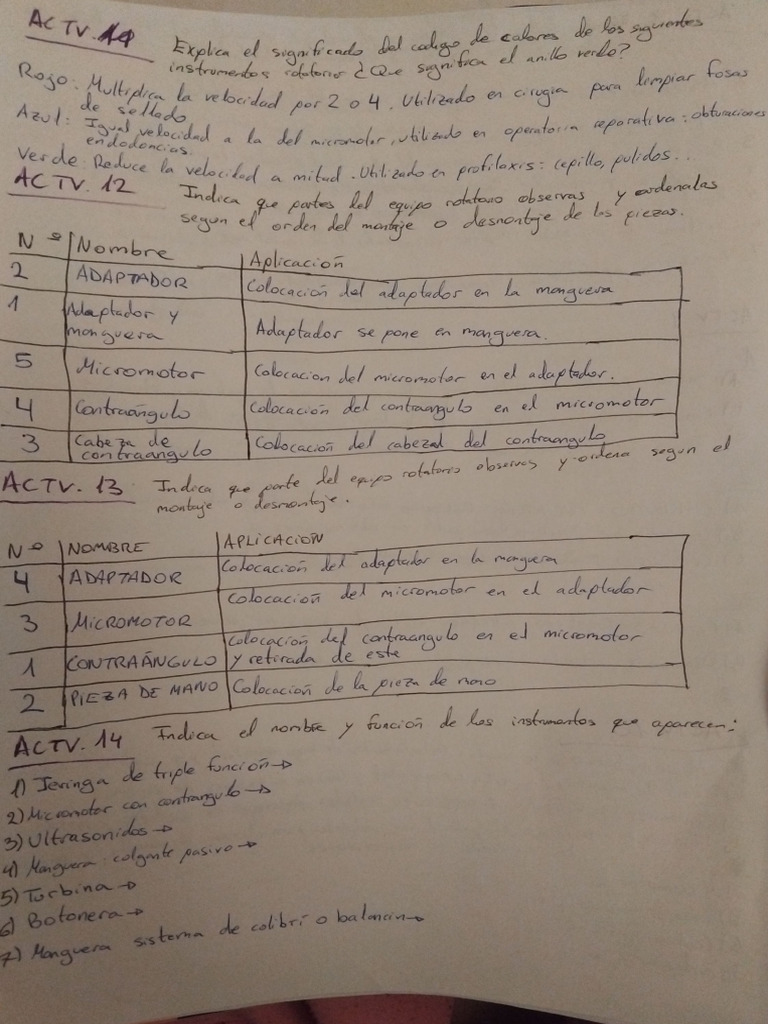 ACTV. 11 Explica el significado del codigo de colores de los siguientes
instrumentos rotatorios ¿Que significa el anillo verde?
Rojo: Multiplica la velocidad por 2 o 4. Utilizado en cirugia para limpiar fosas
de sellado
Azul: Igual velocidad a la del micromotor, utilizado en operatoria reparativa: obturaciones
endodoncias.
Verde: Reduce la velocidad a mitad. Utilizado en profilaxis: cepillo, pulidos...
ACTV. 12 Indica que partes del equipo rotatorio observas y ordenalas
segun el orden del montaje o desmontaje de las piezas.
Nº Nombre Aplicación
2 ADAPTADOR Colocación del adaptador en la manguera
1 Adaptador y
manguera Adaptador se pone en manguera.
5 Micromotor Colocacion del micromotor en el adaptador.
4 Contraángulo Colocación del contraangulo en el micromotor
3 Cabeza de
contraangulo Colocación del cabezal del contraangulo
ACTV. 13 Indica que parte del equipo rotatorio observas y ordena segun el
montaje o desmontaje.
Nº NOMBRE APLICACION
4 ADAPTADOR Colocación del adaptador en la manguera
3 MICROMOTOR Colocación del micromotor en el adaptador
1 CONTRAÁNGULO Colocación del contraangulo en el micromotor
y retirada de este
2 PIEZA DE MANO Colocación de la pieza de mano
ACTV. 14 Indica el nombre y función de los instrumentos que aparecen:
1) Jeringa de triple función→
2) Micromotor con contrangulo→
3) Ultrasonidos→
4) Manguera: colgante pasivo→
5) Turbina→
6) Botonera→
7) Manguera sistema de colibrí o balancin→